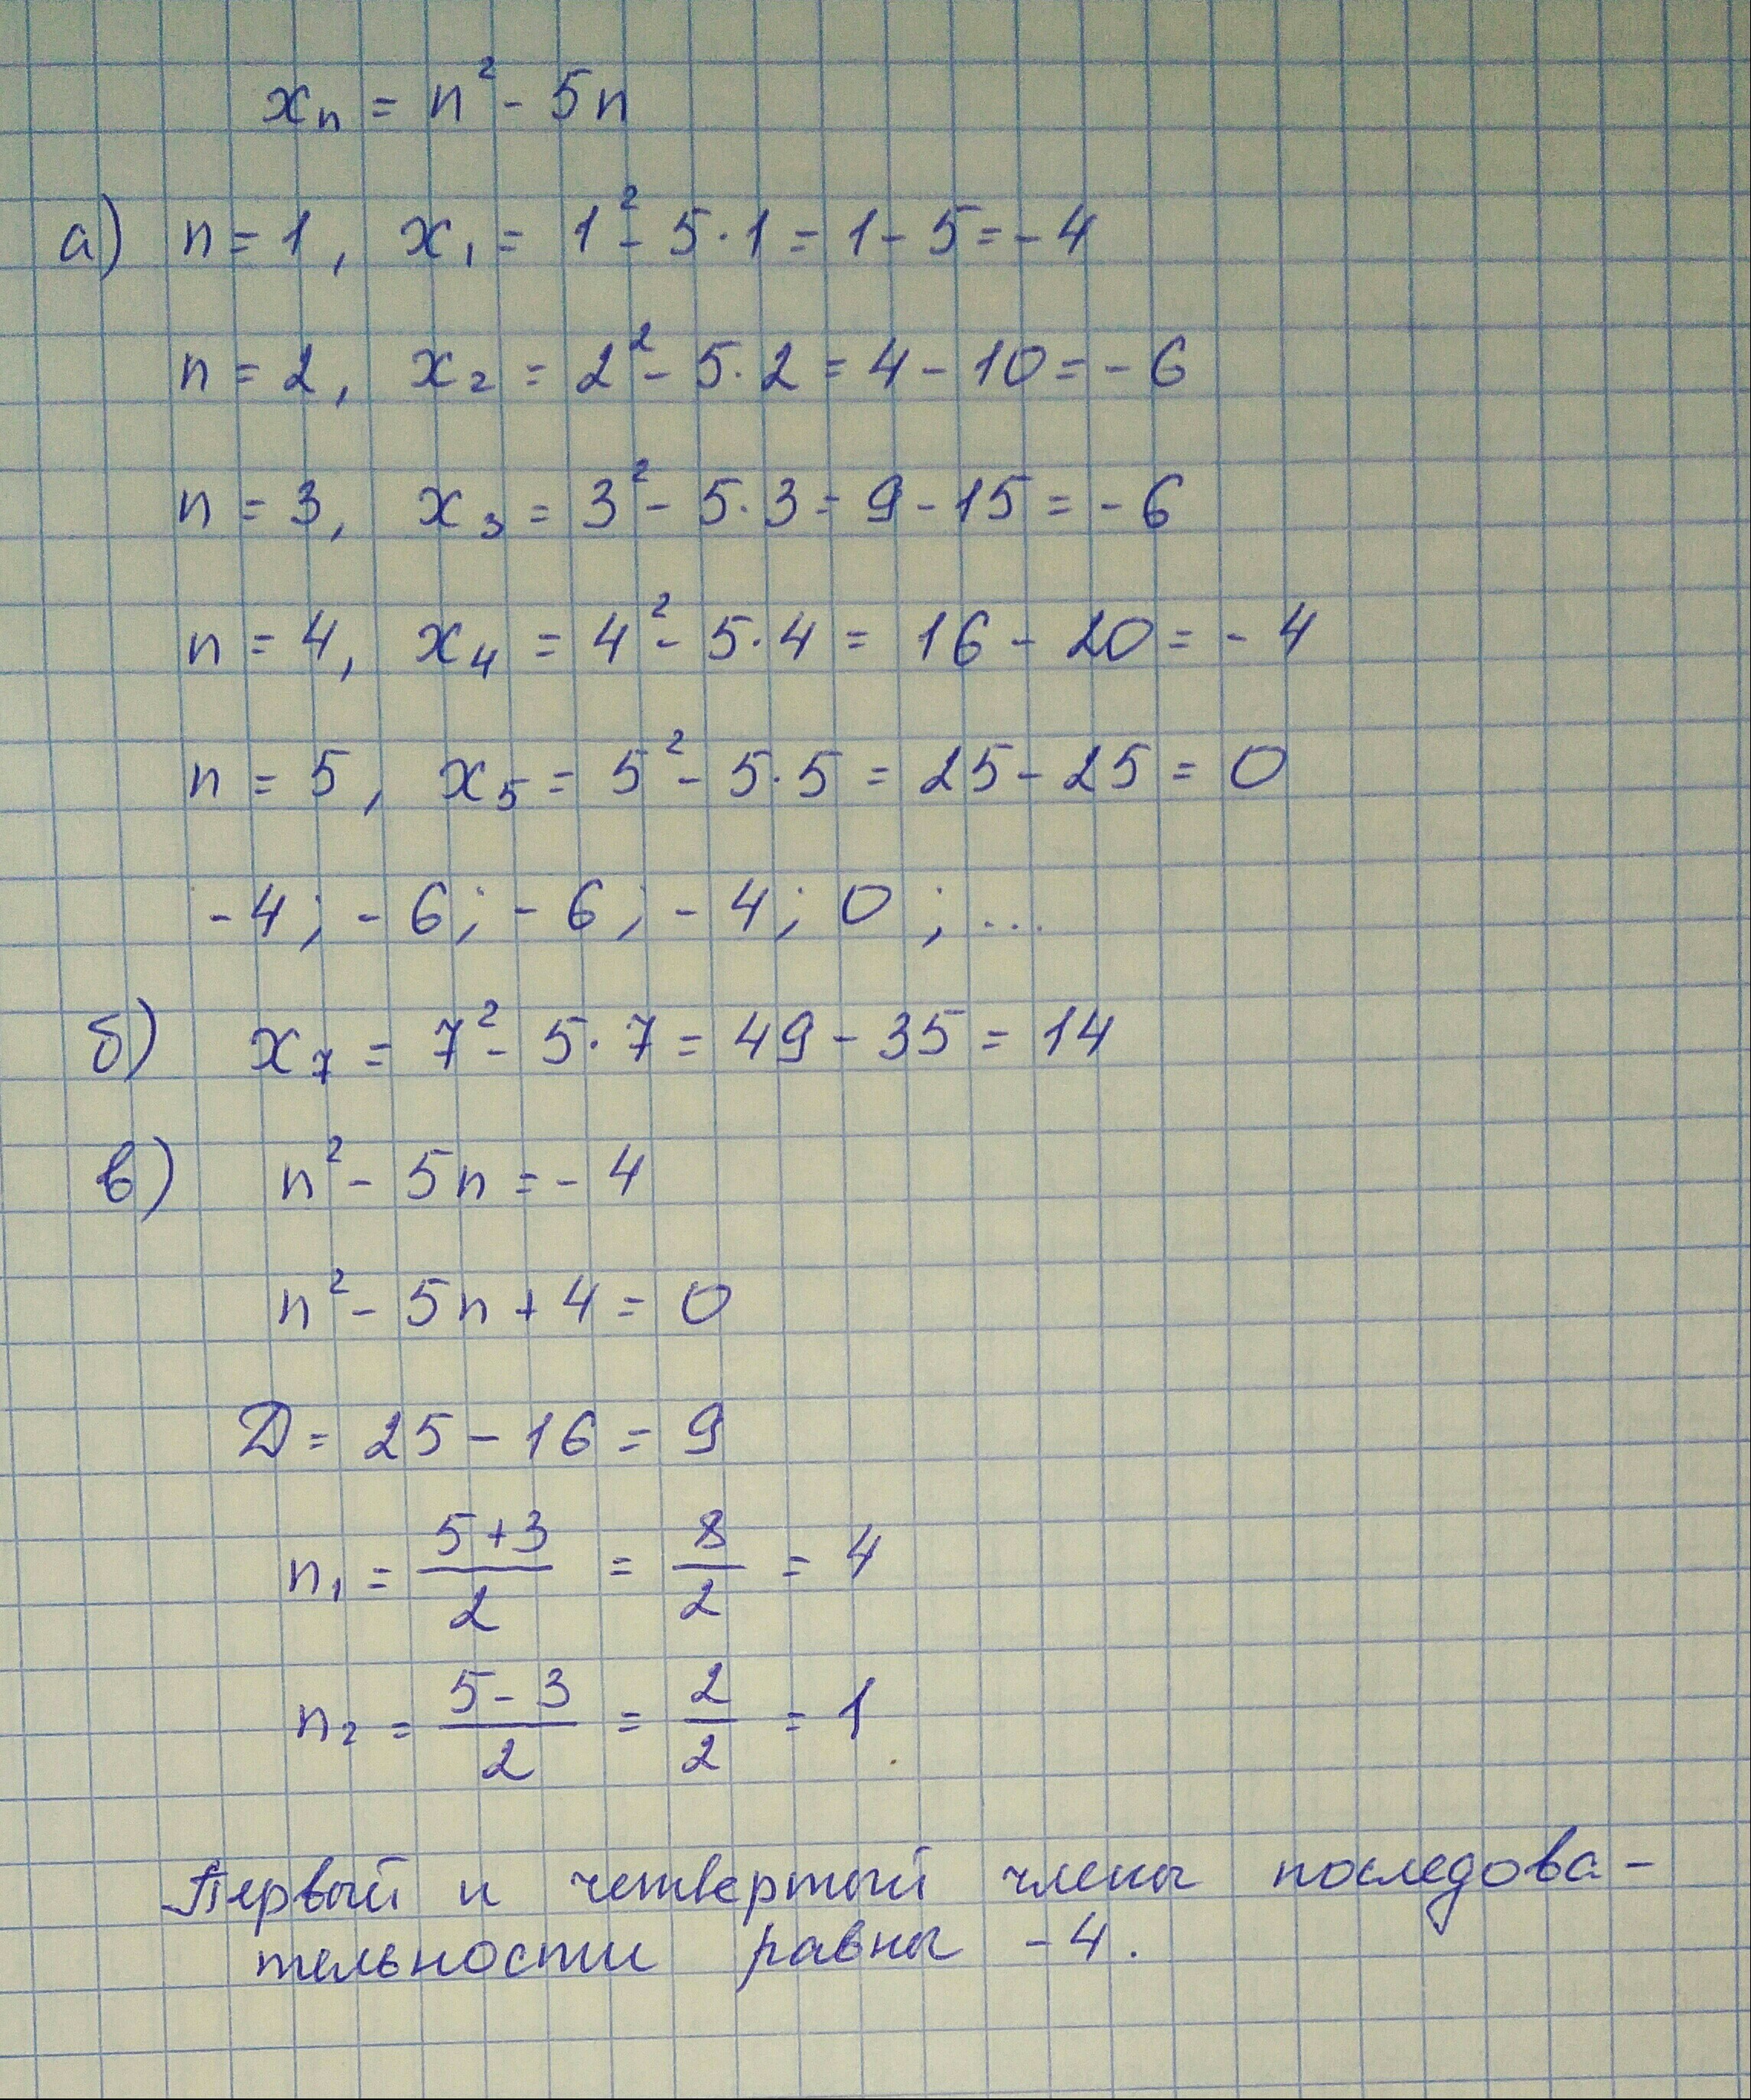 xₙ = n² - 5n
а) n = 1, x₁ = 1² - 5·1 = 1 - 5 = -4
n = 2, x₂ = 2² - 5·2 = 4 - 10 = -6
n = 3, x₃ = 3² - 5·3 = 9 - 15 = -6
n = 4, x₄ = 4² - 5·4 = 16 - 20 = -4
n = 5, x₅ = 5² - 5·5 = 25 - 25 = 0
-4; -6; -6; -4; 0; ...
б) x₇ = 7² - 5·7 = 49 - 35 = 14
в) n² - 5n = -4
n² - 5n + 4 = 0
D = 25 - 16 = 9
n₁ = (5+3)/2 = 8/2 = 4
n₂ = (5-3)/2 = 2/2 = 1
Первый и четвертый члены последова-
тельности равны -4.